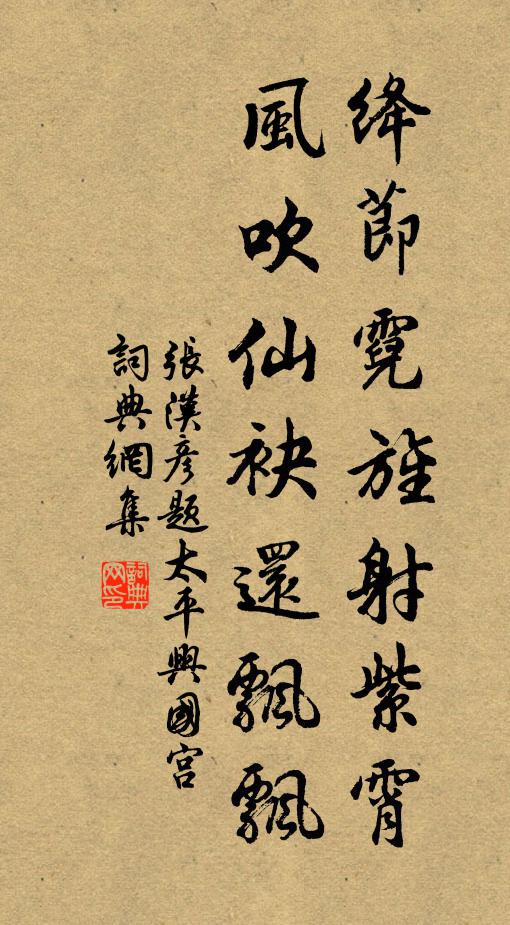 絳節霓旌射紫霄
風吹仙袂還飄飄
張漢彥題太平興國宮
詞典網集
詞典網印